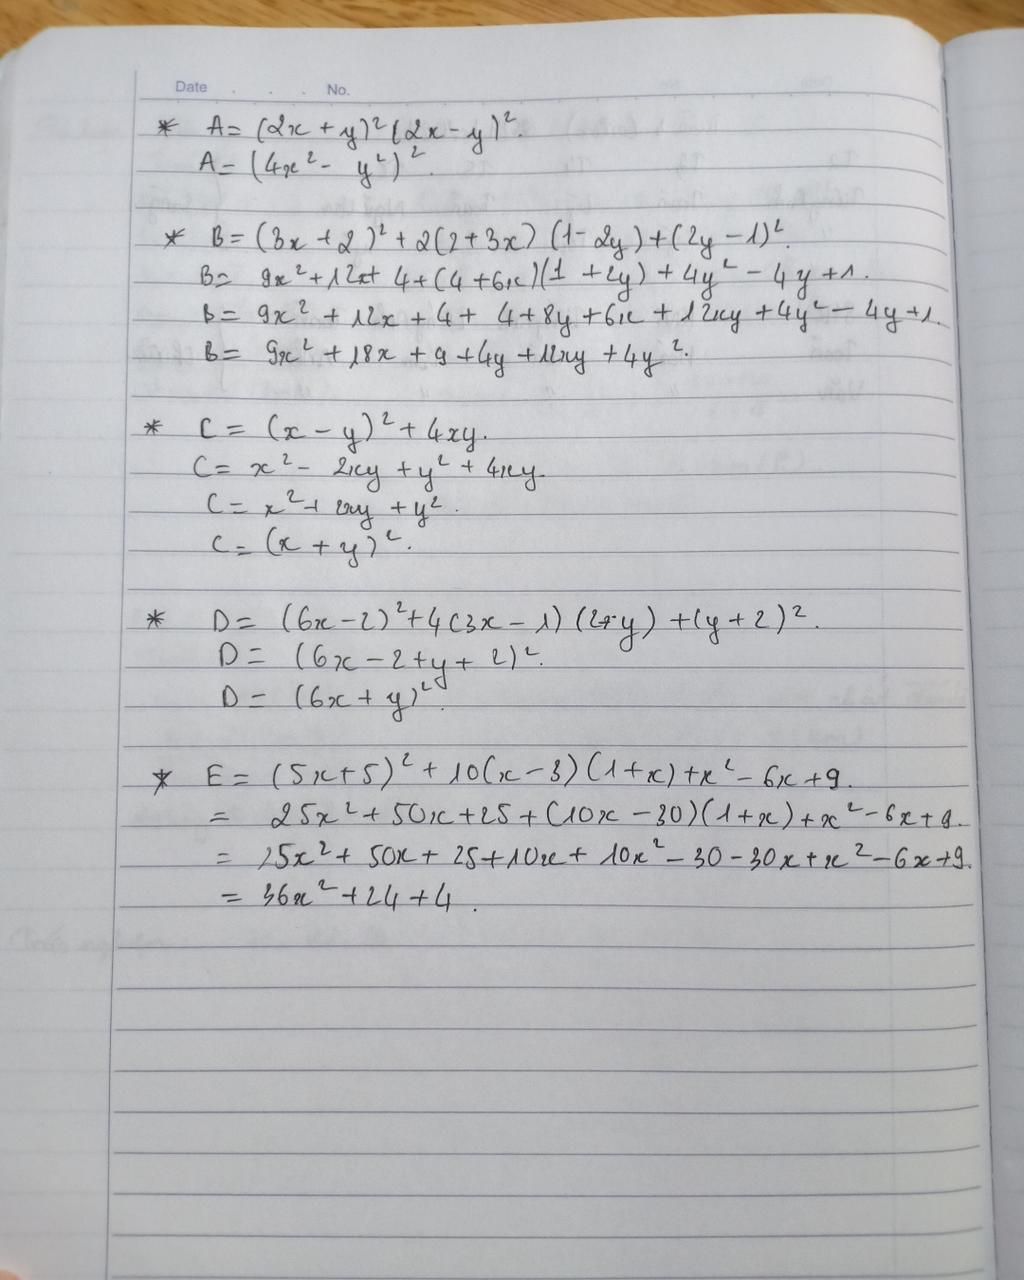 Date . . . No.
* A = (2x + y)²(2x - y)².
A = (4x² - y²)².
* B = (3x + 2)² + 2(2 + 3x)(1 - 2y) + (2y - 1)².
B = 9x² + 12x + 4 + (4 + 6x)(1 + 2y) + 4y² - 4y + 1.
B = 9x² + 12x + 4 + 4 + 8y + 6x + 12xy + 4y² - 4y + 1.
B = 9x² + 18x + 9 + 4y + 12xy + 4y².
* C = (x - y)² + 4xy.
C = x² - 2xy + y² + 4xy.
C = x² + 2xy + y².
C = (x + y)².
* D = (6x - 2)² + 4(3x - 1)(2+y) + (y + 2)².
D = (6x - 2 + y + 2)².
D = (6x + y)².
* E = (5x + 5)² + 10(x - 3)(1 + x) + x² - 6x + 9.
= 25x² + 50x + 25 + (10x - 30)(1 + x) + x² - 6x + 9.
= 25x² + 50x + 25 + 10x + 10x² - 30 - 30x + x² - 6x + 9.
= 36x² + 24 + 4.